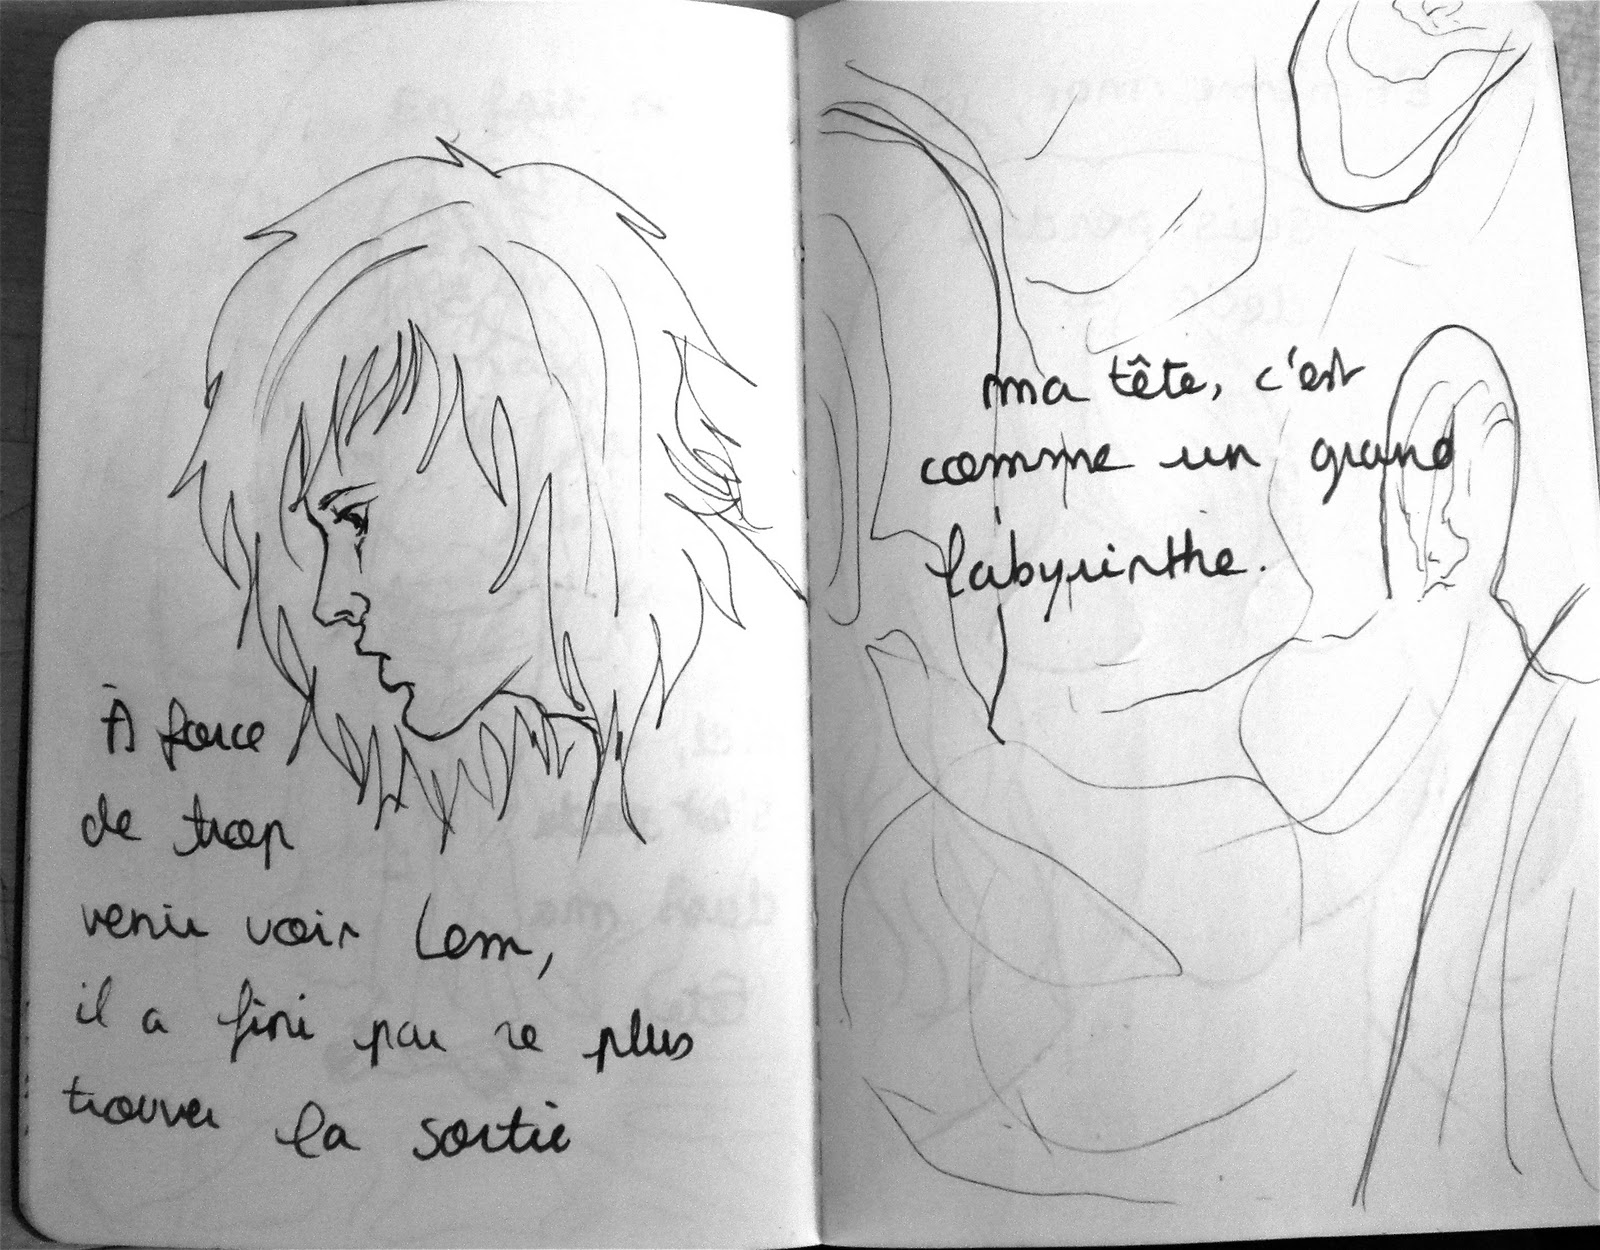 À force
de trop
venir voir Lem,
il a fini par ne plus
trouver la sortie
ma tête, c'est
comme un grand
labyrinthe.